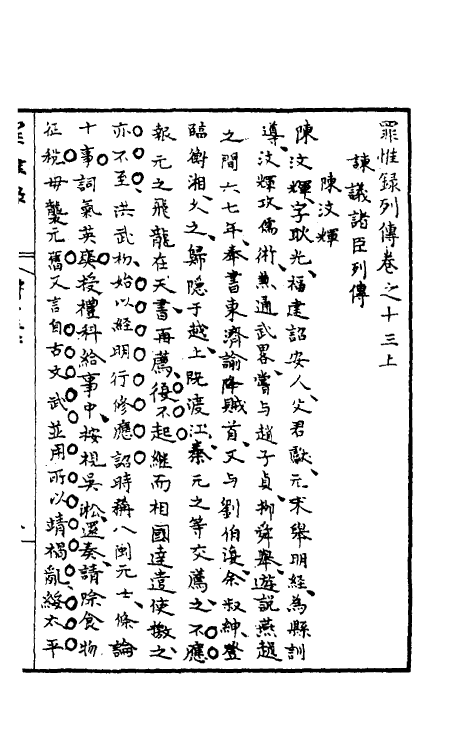 罪惟録列傳卷之十三上
諫議諸臣列傳
陳汶輝
陳汶輝字耿光福建詔安人父君猷元末舉明經為縣訓
導汶輝攻儒術兼通武畧嘗与趙子貞柳舜舉遊説燕趙
之間六七年奉書東濟諭降賊首又与劉伯溫余叔紳登
臨衡湘久之歸隱于越上既渡江秦元之等交薦之不應
報元之飛龍在天書再薦復不起継而相國達遣使檄之
亦不至洪武初始以経明行修應詔時稱八閩元士條論
十事詞氣英爽授禮科給事中按視吳淞還奏請除食物
征稅毋襲元舊又言自古文武並用所以靖禍亂綏太平